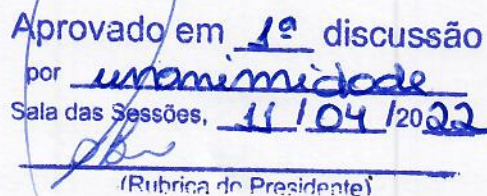 Aprovado em 1ª discussão
por unanimidade
Sala das Sessões, 11 / 04 /2022
(Rubrica do Presidente)